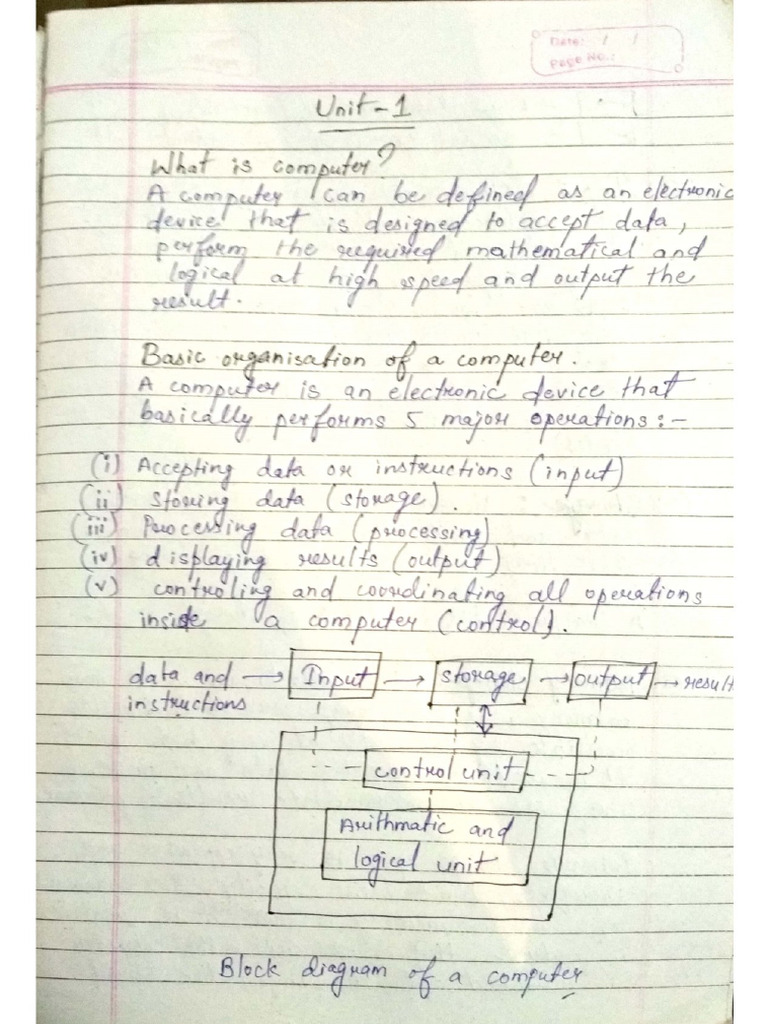 Date: / /
Page No.:
Unit-1
What is computer?
A computer can be defined as an electronic
device that is designed to accept data,
perform the required mathematical and
logical at high speed and output the
result.
Basic organisation of a computer.
A computer is an electronic device that
basically performs 5 major operations:-
(i) Accepting data or instructions (input)
(ii) Storing data (storage).
(iii) Processing data (processing)
(iv) displaying results (output)
(v) controling and coordinating all operations
inside a computer (control).
data and → Input → storage → output → result
instructions
control unit
Arithmatic and
logical unit
Block diagram of a computer